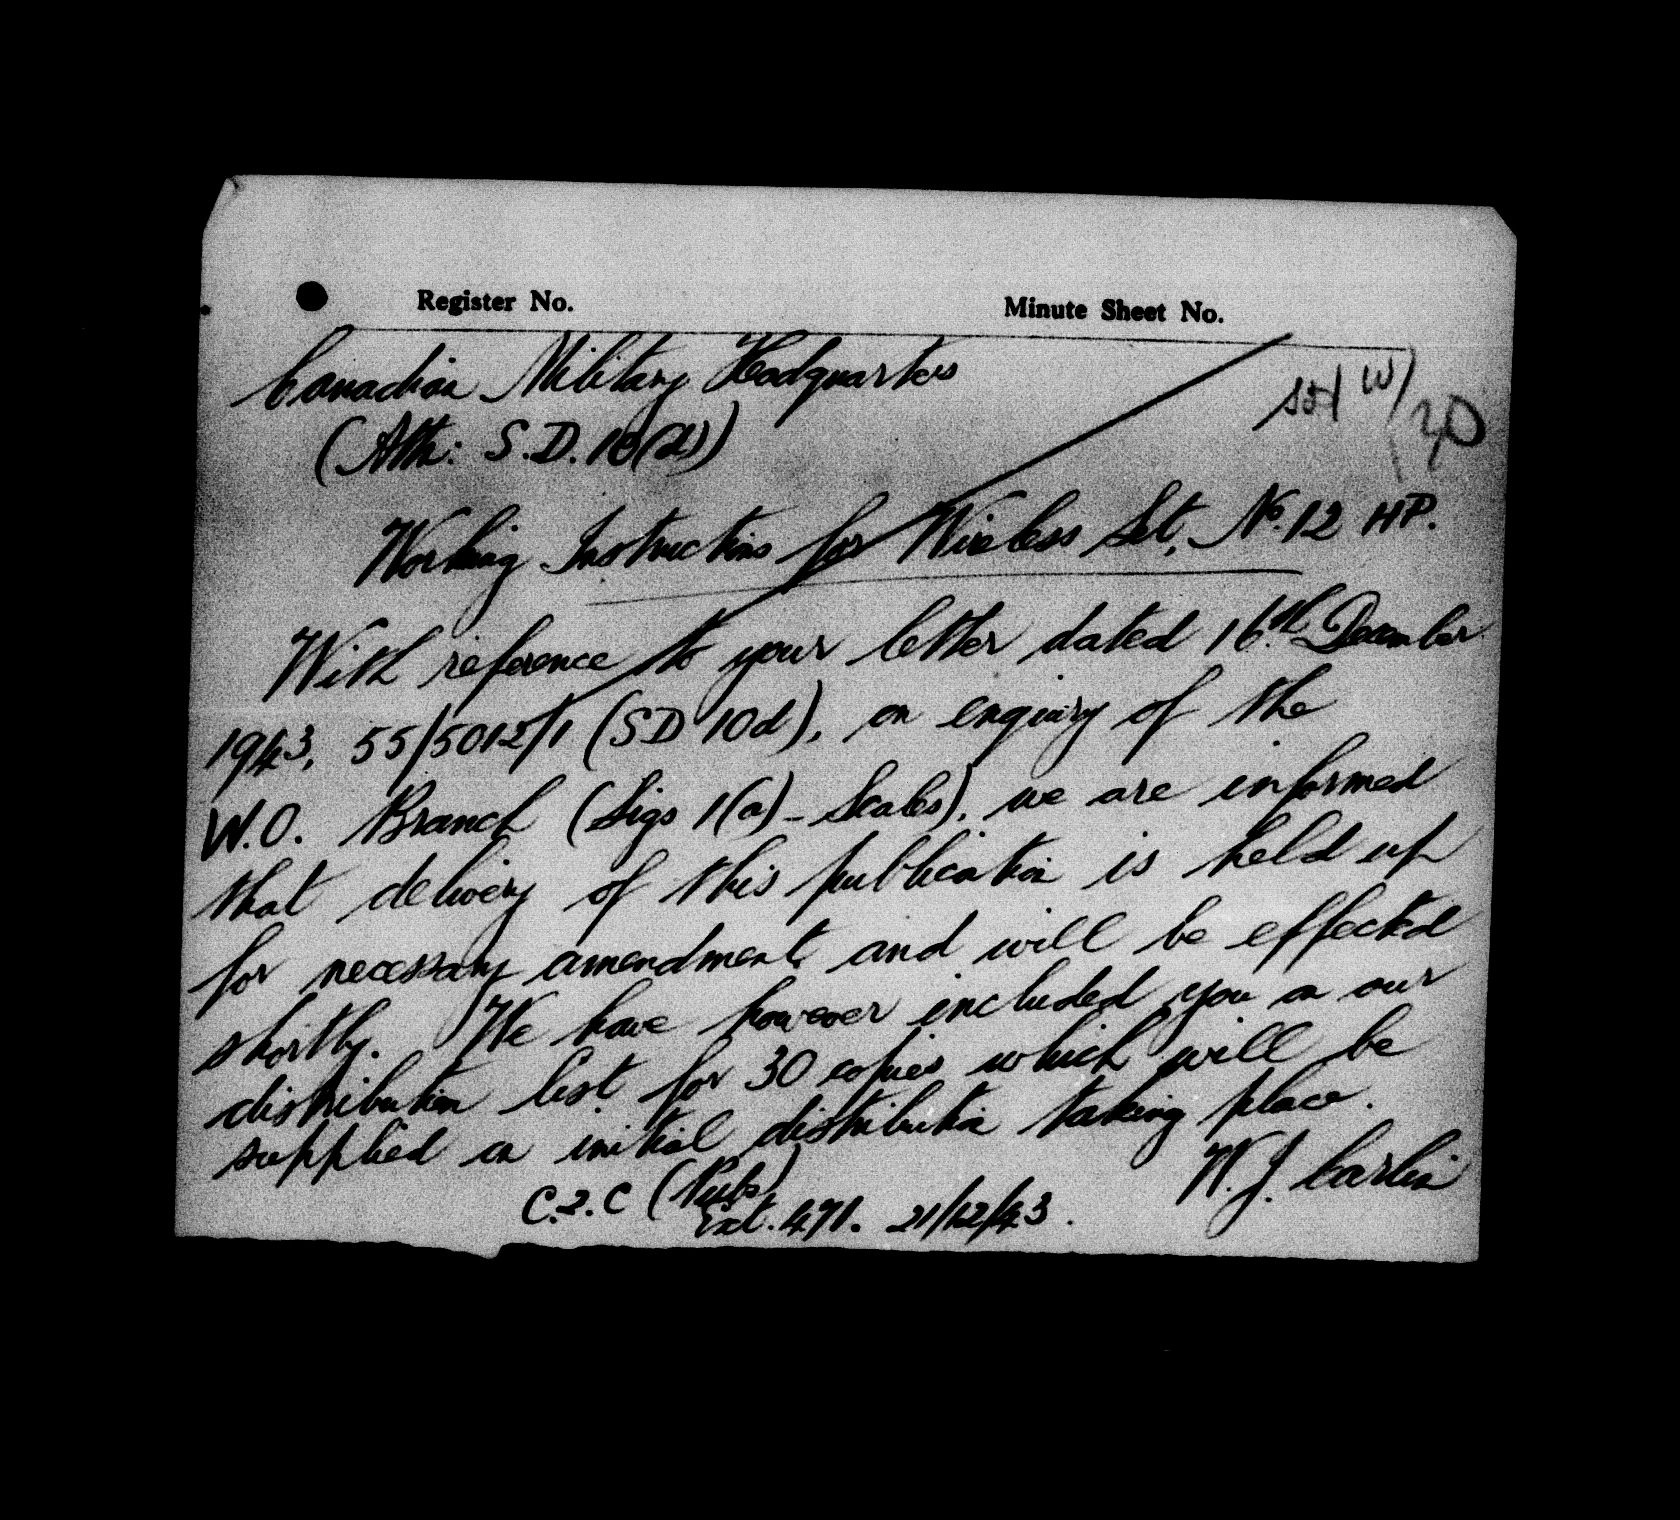 Register No. Minute Sheet No.
Canadian Military Headquarters
(Attn: S.D. 10(d))
Working Instructions for Wireless Set, No. 12 HP.
With reference to your letter dated 16th December
1943, 55/5012/1 (SD 10d), on enquiry of the
W.O. Branch (Sigs 1(a) - Scales), we are informed
that delivery of this publication is held up
for necessary amendment, and will be effected
shortly. We have however included you on our
distribution list for 30 copies which will be
supplied on initial distribution taking place.
W.J. Carlin
C.2.C (Pubs)
Ext. 471. 21/12/43.